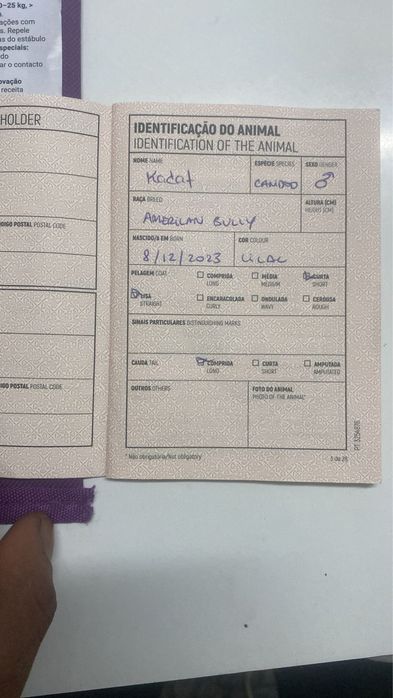 0-25 kg, >
ações com
s. Repele
as do estábulo
speciais:
do
ar o contacto
ovação
receita
HOLDER
DIGO POSTAL POSTAL CODE
IGO POSTAL POSTAL CODE
IDENTIFICAÇÃO DO ANIMAL
IDENTIFICATION OF THE ANIMAL
NOME NAME
ESPÉCIE SPECIES
SEXO GENDER
Kodat
♂
RAÇA BREED
ALTURA (CM)
HEIGHT (CM)
AMERICAN BULLY
NASCIDO/A EM BORN
COR COLOUR
8/12/2023
LILAC
PELAGEM COAT
COMPRIDA
LONG
MÉDIA
MEDIUM
CURTA
SHORT
LISA
STRAIGHT
ENCARACOLADA
CURLY
ONDULADA
WAVY
CERDOSA
ROUGH
SINAIS PARTICULARES DISTINGUISHING MARKS
CAUDA TAIL
COMPRIDA
LONG
CURTA
SHORT
AMPUTADA
AMPUTATED
OUTROS OTHERS
FOTO DO ANIMAL
PHOTO OF THE ANIMAL*
* Não obrigatória/Not obligatory
3 de 28